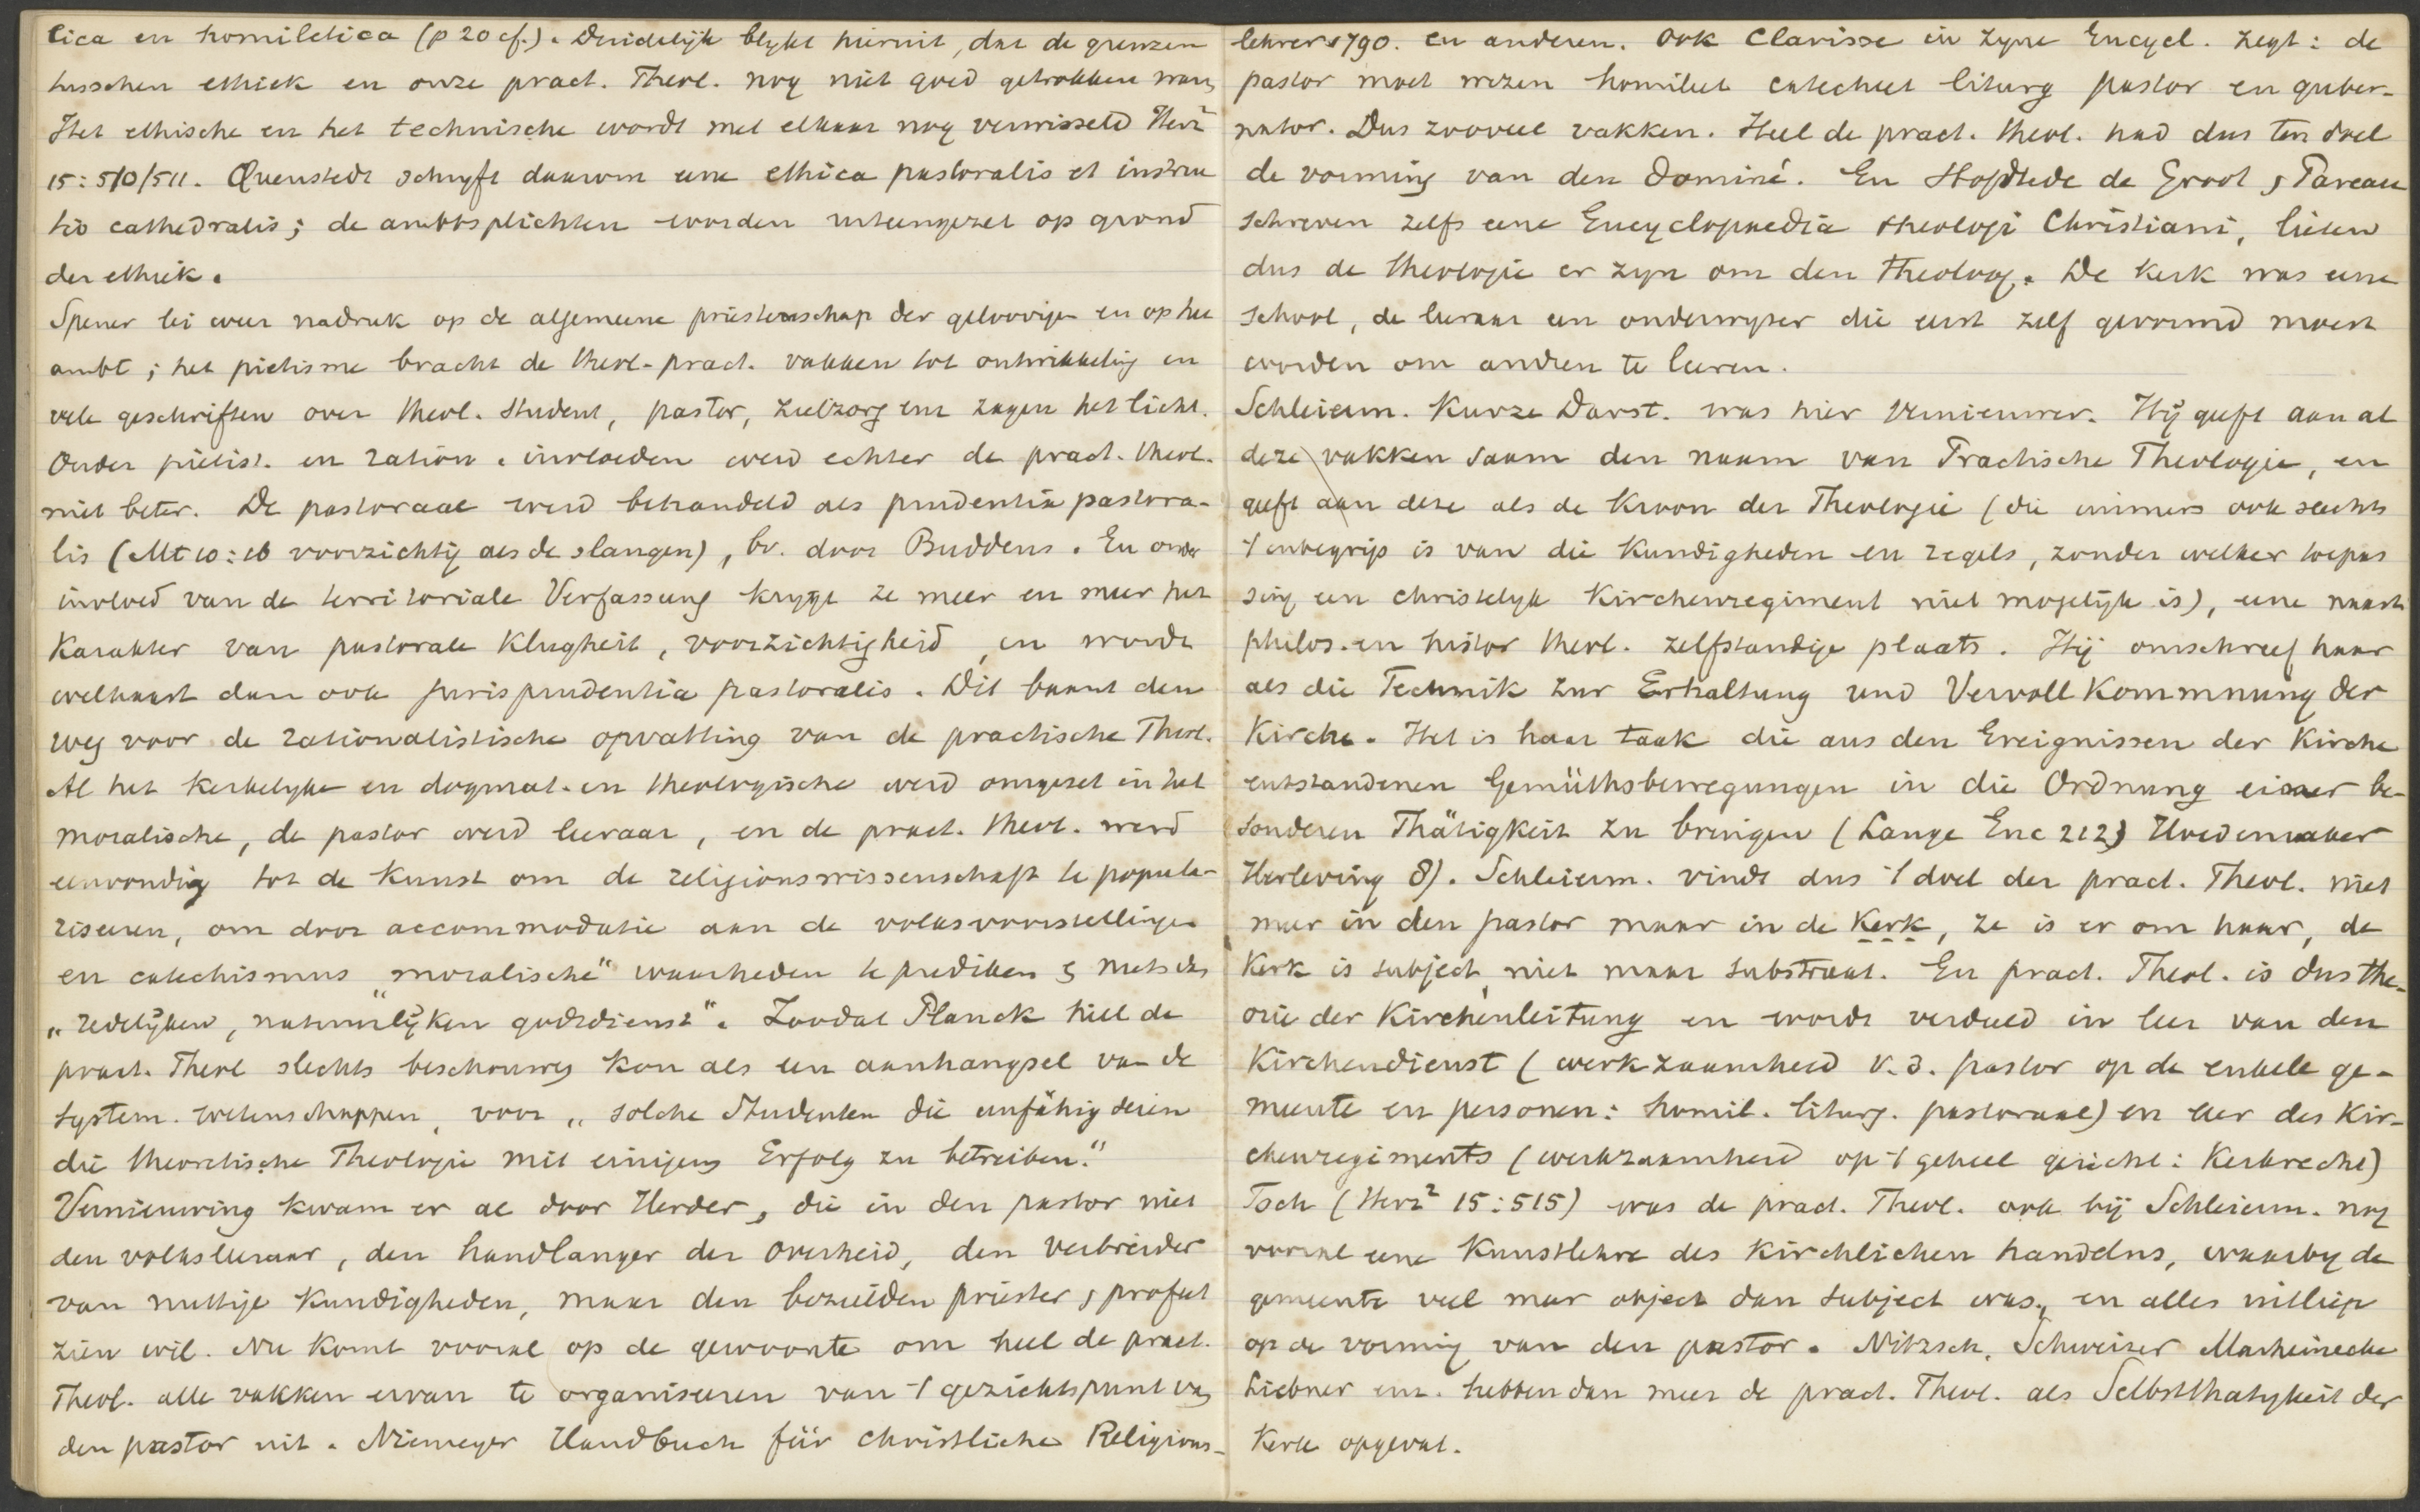 tica en homiletica (p 20 cf.). Duidelijk blykt hieruit, dat de grenzen
tusschen ethiek en onze pract. Theol. nog niet goed getrokken waren
Het ethische en het technische wordt met elkaar nog verwisseld Herz²
15:510/511. Quenstedt schryft daarom eene ethica pastoralis et instruc
tio cathedralis; de ambtsplichten worden uiteengezet op grond
der ethiek.
Spener lei weer nadruk op de algemeene priesterschap der geloovigen en op het
ambt; het pietisme bracht de theol-pract. vakken tot ontwikkeling en
vele geschriften over theol. student, pastor, zielzorg enz zagen het licht.
Onder piëtist. en ration. invloeden werd echter de pract. theol.
niet beter. De pastoraal werd behandeld als prudentia pastora-
lis (Mt 10:16 voorzichtig als de slangen), bv. door Buddeus. En onder
invloed van de territoriale Verfassung krygt ze meer en meer het
Karakter van pastorale Klugheit, voorzichtigheid, en wordt
welhaast dan ook jurisprudentia pastoralis. Dit baant den
weg voor de rationalistische opvatting van de practische Theol.
Al het Kerkelyke en dogmat. en theologische werd omgezet in het
moralische, de pastor werd leeraar, en de pract. theol. werd
eenvoudig tot de Kunst om de religionswissenschaft te popula-
riseren, om door accommodatie aan de volksvoorstellingen
en catechismus „moralische“ waarheden te prediken & niets dan
„redelijken, natuurlijken godsdienst“. Zoodat Planck heel de
pract. Theol slechts beschouwen kon als een aanhangsel van de
system. wetenschappen, voor „solche Studenten die unfähig seien
die theoretische Theologie mit einigem Erfolg zu betreiben.“
Vernieuwing kwam er al door Herder, die in den pastor niet
den volksleeraar, den handlanger der Overheid, den verbreider
van nuttige Kundigheden, maar den bezielden priester & profeet
zien wil. Nu Komt vooral op de gewoonte om heel de pract.
Theol. alle vakken ervan te organiseeren van 't gezichtspunt van
den pastor uit. Niemeyer Handbuch für christliche Religions-
lehrer 1790. en anderen. Ook Clarisse in zyne Encycl. zegt: de
pastor moet wezen homileet catecheet liturg pastor en guber-
nator. Dus zooveel vakken. Heel de pract. theol. had dus ten doel
de vorming van den Dominé. En Hofstede de Groot & Pareau
schreven zelfs eene Encyclopaedia theologi Christiani, lieten
dus de theologie er zyn om den theoloog. De Kerk was eene
school, de leeraar een onderwyzer die eerst zelf gevormd moest
worden om andren te leeren.
Schleierm. Kurze Darst. was hier vernieuwer. Hij geeft aan al
deze vakken saam den naam van Practische Theologie, en
geeft aan deze als de Kroon der Theologie (die immers ook slechts
't inbegrip is van die Kundigheden en regels, zonder welker toepas
sing een christelyk Kirchenregiment niet mogelijk is), eene naast
philos. en histor theol. zelfstandige plaats. Hij omschreef haar
als die Technik zur Erhaltung und Vervollkommnung der
Kirche. Het is haar taak die aus den Ereignissen der Kirche
entstandenen Gemüthsbewegungen in die Ordnung einer be-
sonderen Thätigkeit zu bringen (Lange Enc 212)
Herleving 8). Schleierm. vindt dus 't doel der pract. Theol. niet
meer in den pastor maar in de Kerk, ze is er om haar, de
Kerk is subject, niet maar substraat. En pract. Theol. is dus the-
orie der Kirchenleitung en wordt verdeeld in leer van den
Kirchendienst (werkzaamheid v.d. pastor op de enkele ge-
meente en personen: homil. liturg. pastoraal) en leer des Kir-
chenregiments (werkzaamheid op 't geheel gericht: Kerkrecht)
Toch (Herz² 15:515) was de pract. Theol. ook bij Schleierm. nog
vooral eene Kunstlehre des Kirchlichen handelns, waarby de
gemeente veel meer object dan subject was, en alles uitliep
op de vorming van den pastor. Nitzsch, Schweizer Marheinecke
Liebner enz. hebben dan meer de pract. Theol. als Selbstthatigkeit der
Kerk opgevat.